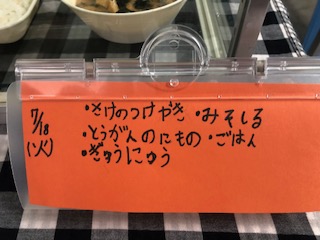 7/18
(火)
・さけのつけやき ・みそしる
・とうがんのにもの ・ごはん
・ぎゅうにゅう